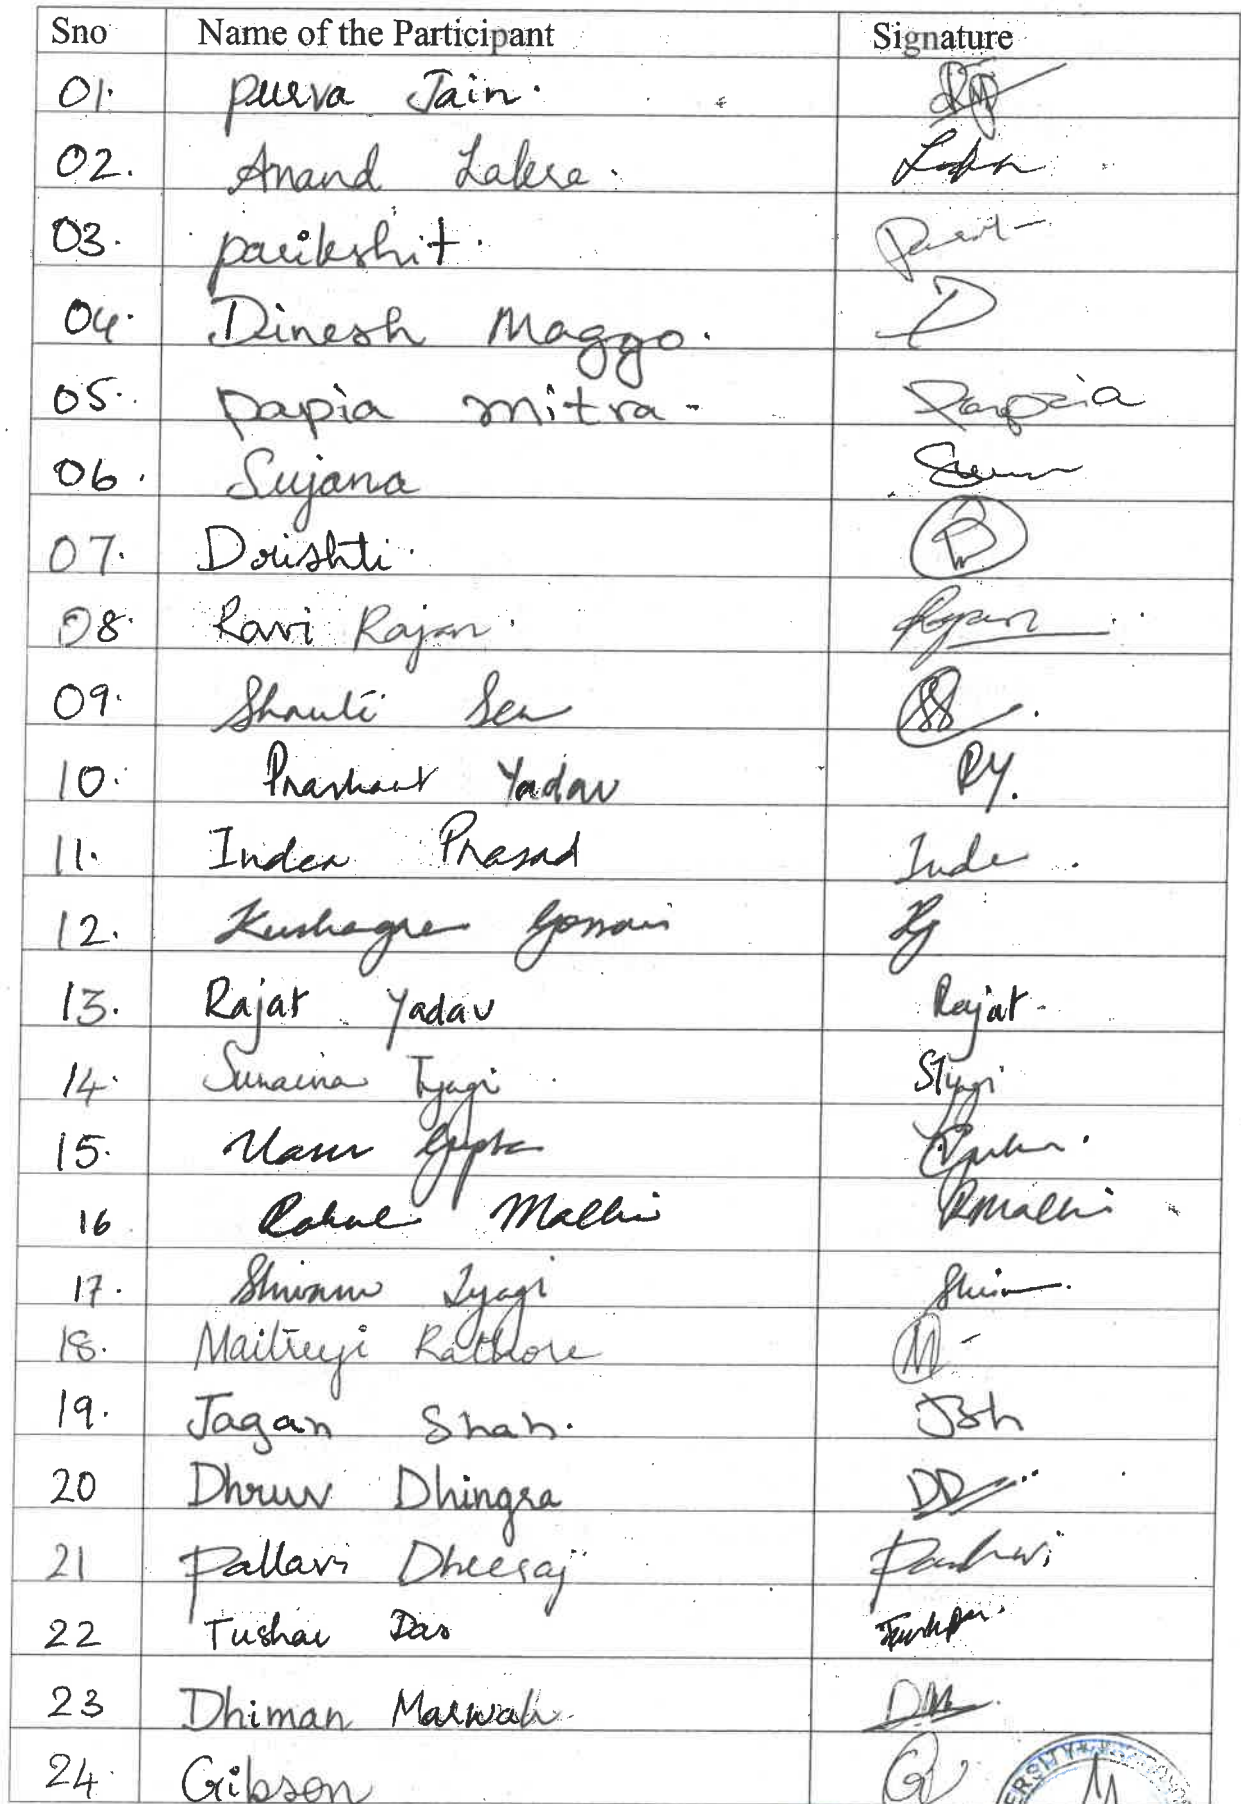 Sno Name of the Participant Signature
01. Purva Jain.
02. Anand Lakra.
03. parikshit.
04. Dinesh Maggo. D
05. Papia mitra - Papia
06. Sujana
07. Drishti.
08. Ravi Rajan. Rajan
09. Shruti Sen SS
10. Prashant Yadav PY.
11. Inder Prasad Inde
12. Kushagra Gossain Kg
13. Rajat Yadav Rajat-
14. Sunaina Tyagi STyagi
15. Gupta
16 Rahul Malhi RMalhi
17. Shivam Tyagi
18. Maitreyi Rathore M-
19. Jagan Shah. JSh
20 Dhruv Dhingra DD
21 Pallavi Dheeraj
22 Tushar Das
23 Dhiman Marwah DM
24. Gibson G